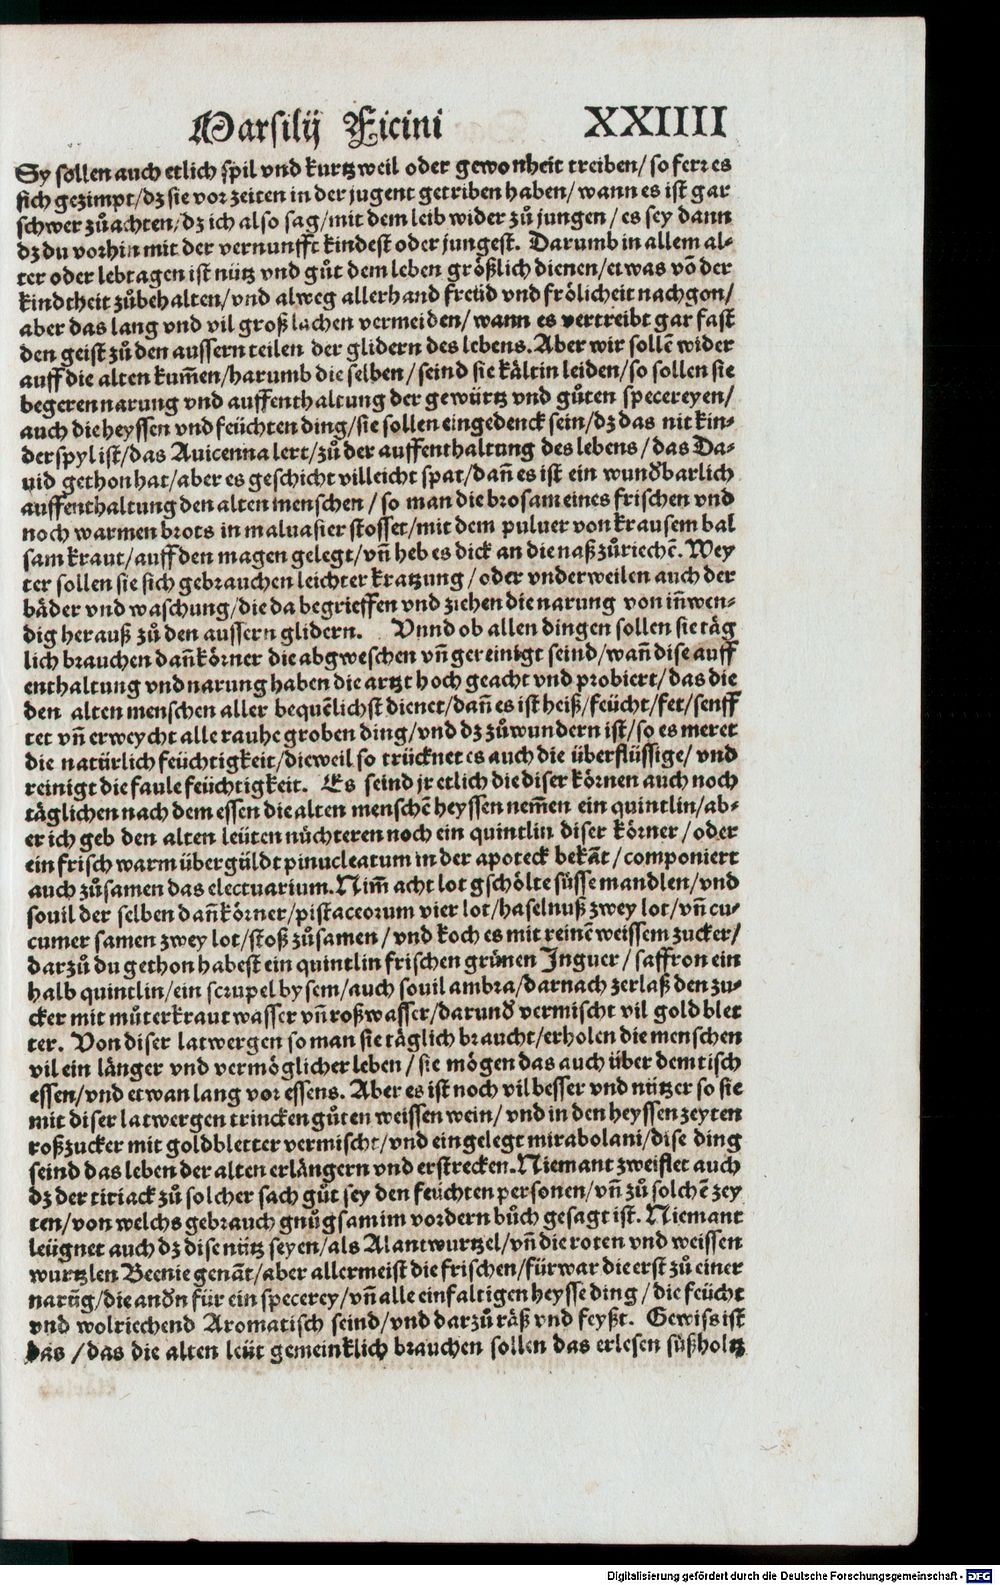 Marsilij Ficini XXIIII
Sy sollen auch etlich spil vnd kurtzweil oder gewonheit treiben/ so ferr es
sich gezimpt/dz sie vor zeiten in der jugent getriben haben/ wann es ist gar
schwer zů achten/dz ich also sag/mit dem leib wider zů jungen/ es sey dann
dz du vorhin mit der vernunfft kindest oder jungest. Darumb in allem al-
ter oder lebtagen ist nütz vnd gůt dem leben größlich dienen/etwas võ der
kindtheit zůbehalten/vnd alweg allerhand freüd vnd frölicheit nachgon/
aber das lang vnd vil groß lachen vermeiden/ wann es vertreibt gar fast
den geist zů den aussern teilen der glidern des lebens. Aber wir sollẽ wider
auff die alten kum̃en/harumb die selben/ seind sie kält in leiden/so sollen sie
begeren narung vnd auffenthaltung der gewürtz vnd gůten specereyen/
auch die heyssen vnd feüchten ding/sie sollen eingedenck sein/dz das nit kin-
derspyl ist/das Auicenna lert/zů der auffenthaltung des lebens/ das Da-
uid gethon hat/aber es geschicht villeicht spat/dañ es ist ein wunðbarlich
auffenthaltung den alten menschen/ so man die brosam eines frischen vnd
noch warmen brots in maluasier stosset/mit dem puluer von krausem bal
sam kraut/auff den magen gelegt/vñ heb es dick an die naß zůriechẽ. Wey
ter sollen sie sich gebrauchen leichter kratzung/ oder vnderweilen auch der
bäder vnd waschung/die da begrieffen vnd ziehen die narung von iñwen-
dig herauß zů den aussern glidern. Vnnd ob allen dingen sollen sie täg
lich brauchen dañkörner die abgweschen vñ gereinigt seind/wañ dise auff
enthaltung vnd narung haben die artzt hoch geacht vnd probiert/das die
den alten menschen aller bequẽlichst dienet/dañ es ist heiß/feücht/fet/senff
tet vñ erweycht alle rauhe groben ding/vnd dz zůwundern ist/so es meret
die natürlich feüchtigkeit/dieweil so trücknet es auch die überflüssige/ vnd
reinigt die faule feüchtigkeit. Es seind jr etlich die diser körnen auch noch
täglichen nach dem essen die alten menschẽ heyssen nem̃en ein quintlin/ab-
er ich geb den alten leüten nůchteren noch ein quintlin diser körner/ oder
ein frisch warm übergüldt pinucleatum in der apoteck bekãt/componiert
auch zůsamen das electuarium. Nim̃ acht lot gschölte süsse mandlen/vnd
souil der selben dañkörner/pistaceorum vier lot/haselnuß zwey lot/vñ cu-
cumer samen zwey lot/stoß zůsamen/ vnd koch es mit reinẽ weissem zucker/
darzů du gethon habest ein quintlin frischen grůnen Inguer/ saffron ein
halb quintlin/ein scrupel bysem/auch souil ambra/darnach zerlaß den zu-
cker mit můterkraut wasser vñ roßwasser/darunð vermischt vil gold blet
ter. Von diser latwergen so man sie täglich braucht/erholen die menschen
vil ein länger vnd vermöglicher leben/ sie mögen das auch über dem tisch
essen/vnd etwan lang vor essens. Aber es ist noch vil besser vnd nützer so sie
mit diser latwergen trincken gůten weissen wein/ vnd in den heyssen zeyten
roßzucker mit goldbletter vermischt/vnd eingelegt mirabolani/dise ding
seind das leben der alten erlängern vnd erstrecken. Niemant zweiflet auch
dz der tiriack zů solcher sach gůt sey den feüchten personen/vñ zů solchẽ zey
ten/von welchs gebrauch gnůgsam im vordern bůch gesagt ist. Niemant
leügnet auch dz dise nütz seyen/als Alantwurtzel/vñ die roten vnd weissen
wurtzlen Beenie genãt/aber allermeist die frischen/fürwar die erst zů einer
narũg/die anðn für ein specerey/vñ alle einfaltigen heysse ding/ die feücht
vnd wolriechend Aromatisch seind/vnd darzů räß vnd feyßt. Gewiß ist
das/das die alten leüt gemeinklich brauchen sollen das erlesen süßholtz
Digitalisierung gefördert durch die Deutsche Forschungsgemeinschaft - DFG